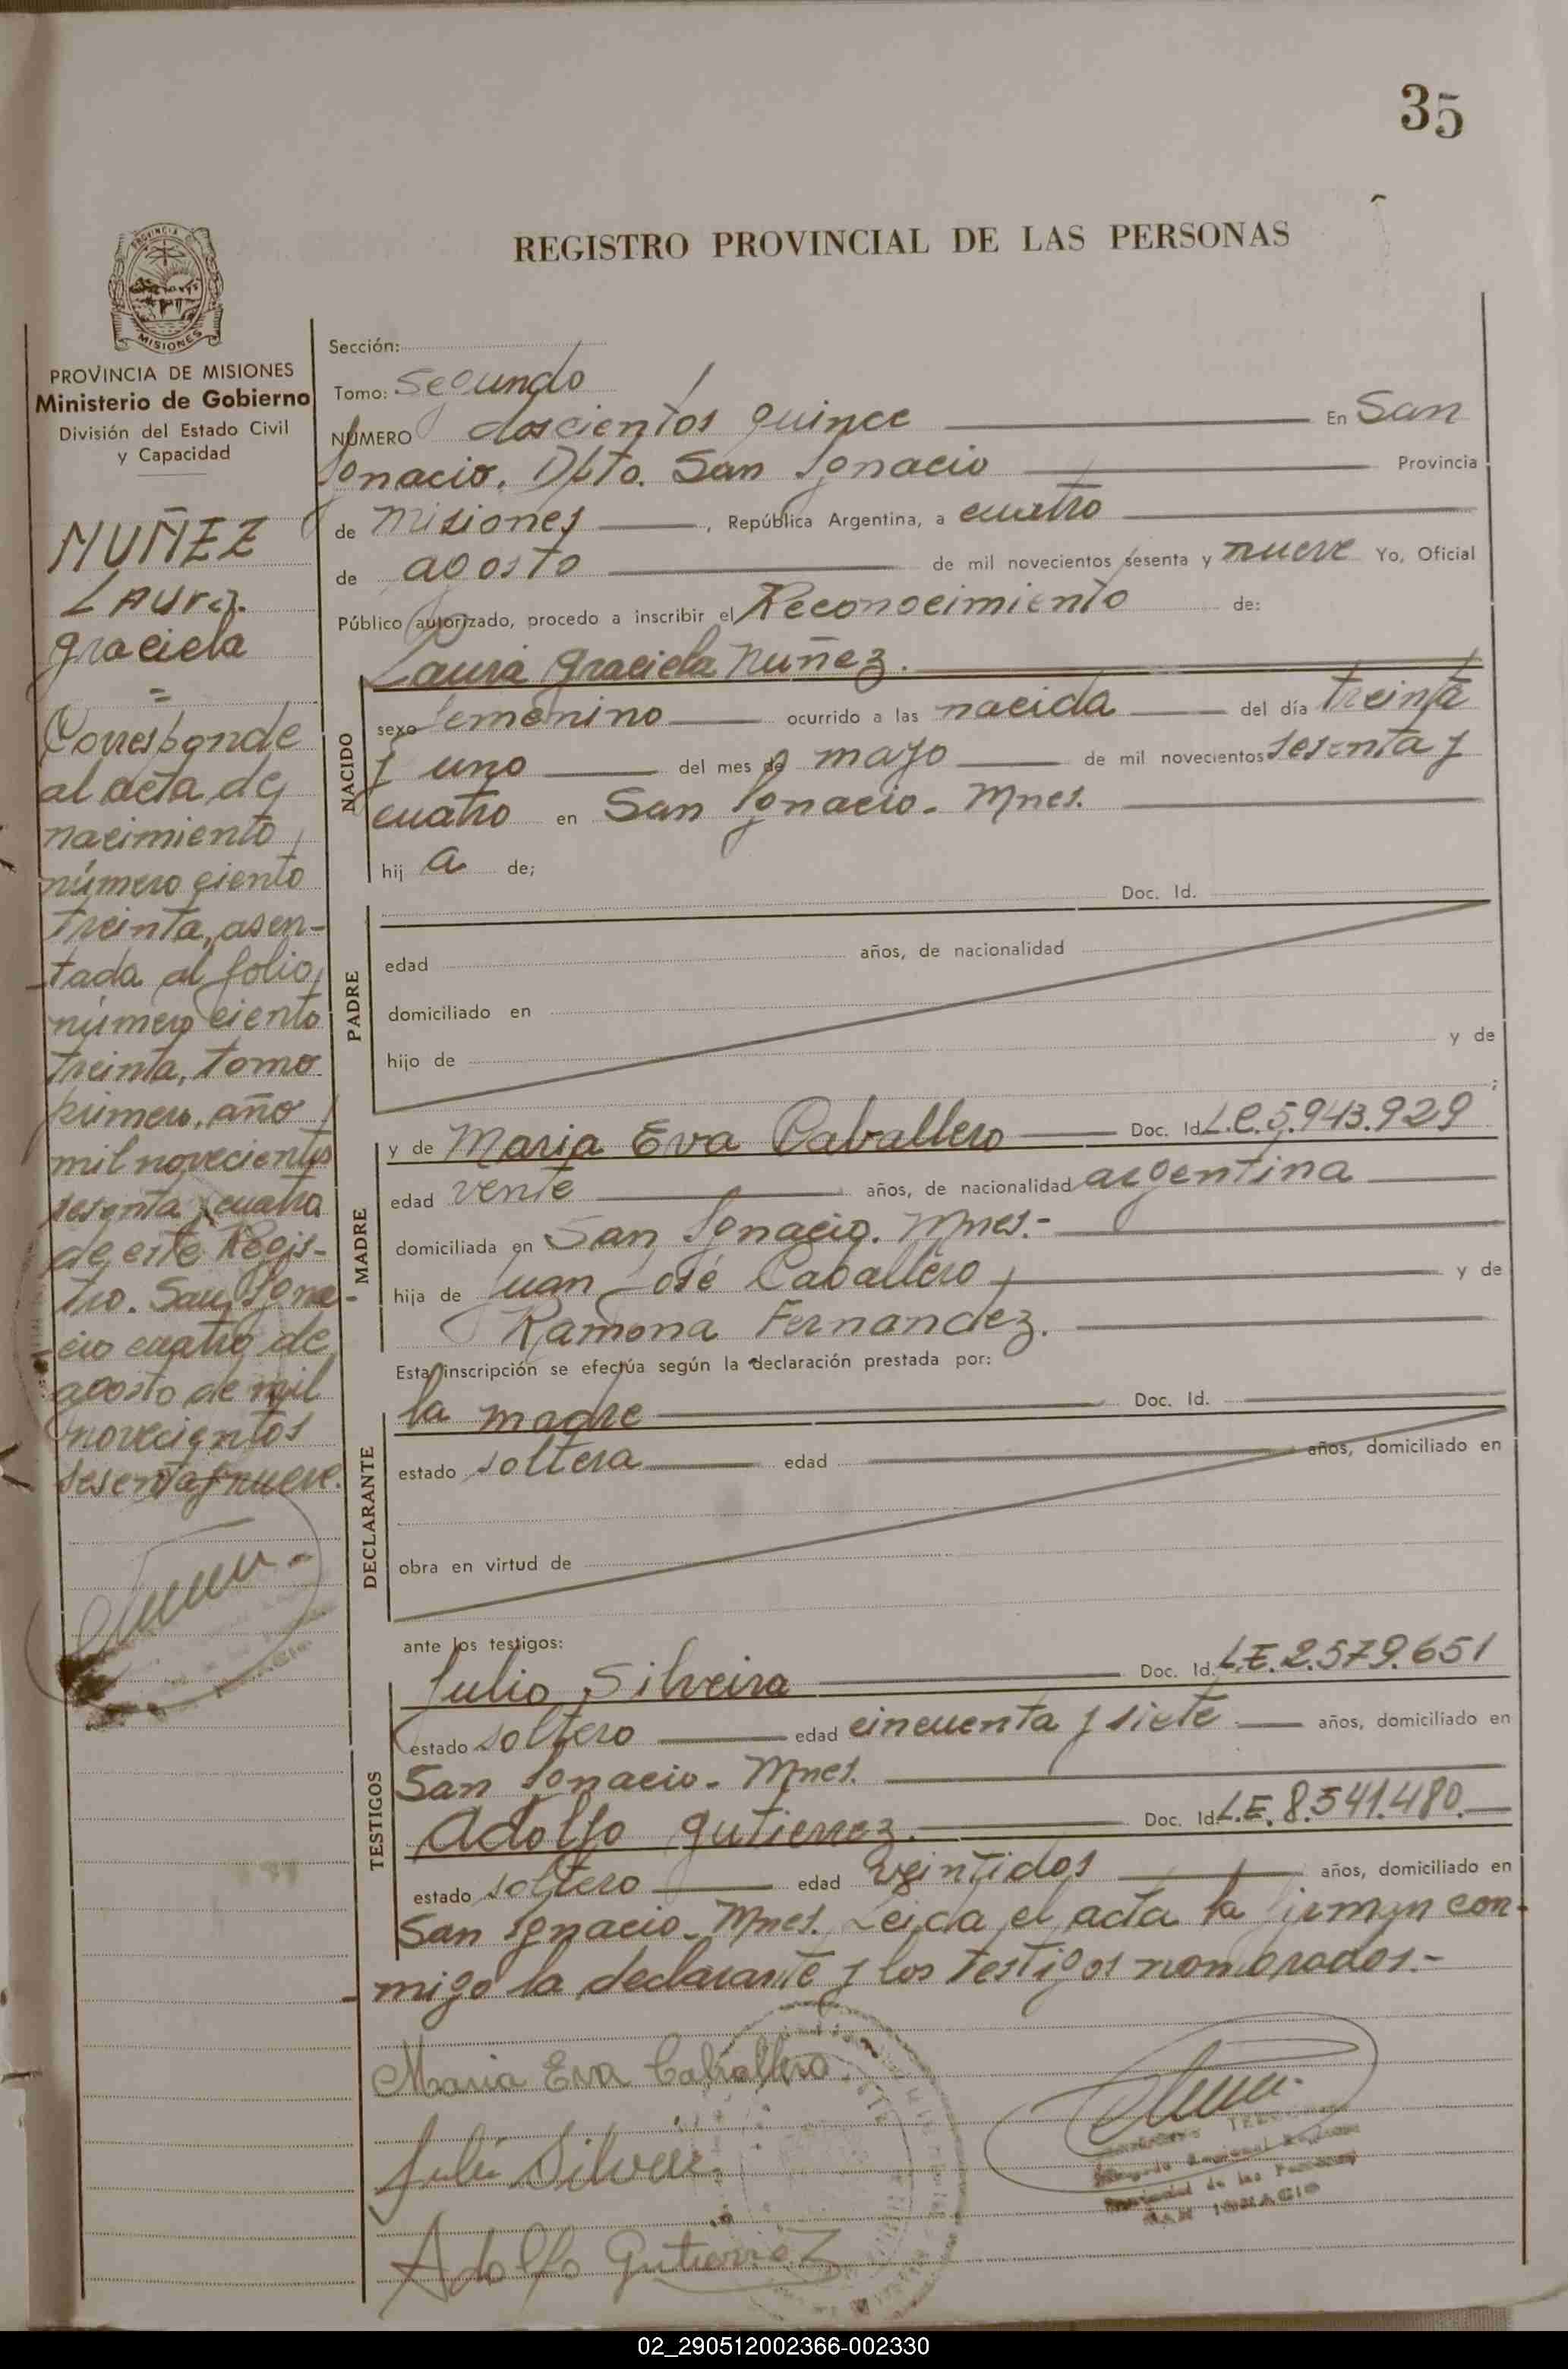 35
REGISTRO PROVINCIAL DE LAS PERSONAS
PROVINCIA
MISIONES
PROVINCIA DE MISIONES
Ministerio de Gobierno
División del Estado Civil
y Capacidad
NUÑEZ
Laura
Graciela
=
Corresponde
al acta de
nacimiento
número ciento
treinta, asen-
tada al folio
número ciento
treinta, tomo
primero, año
mil novecientos
sesenta y cuatro
de este Regis-
tro. San Igna-
cio cuatro de
agosto de mil
novecientos
sesenta y nueve.
Sección:
Tomo: Segundo
NÚMERO doscientos quince En San
Ignacio. Dpto. San Ignacio Provincia
de Misiones, República Argentina, a cuatro
de agosto de mil novecientos sesenta y nueve Yo, Oficial
Público autorizado, procedo a inscribir el Reconocimiento de:
Laura Graciela Nuñez.
NACIDO
sexo femenino ocurrido a las nacida del día treinta
y uno del mes de mayo de mil novecientos sesenta y
cuatro en San Ignacio - Mnes.
hij a de;
PADRE
Doc. Id.
edad años, de nacionalidad
domiciliado en
hijo de y de
;
MADRE
y de Maria Eva Caballero Doc. Id. L.C. 5.943.929
edad vente años, de nacionalidad argentina
domiciliada en San Ignacio. Mnes.-
hija de Juan José Caballero y de
Ramona Fernandez.
Esta inscripción se efectúa según la declaración prestada por:
DECLARANTE
la madre Doc. Id.
estado soltera edad años, domiciliado en
obra en virtud de
ante los testigos:
TESTIGOS
Julio Silveira Doc. Id. L.E. 2.579.651
estado soltero edad cincuenta y siete años, domiciliado en
San Ignacio - Mnes.
Adolfo Gutierrez. Doc. Id. L.E. 8.541.480.
estado soltero edad veintidos años, domiciliado en
San Ignacio - Mnes. Leida el acta la firman con-
migo la declarante y los testigos nombrados.-
Maria Eva Caballero
Julio Silveira
Adolfo Gutierrez
SAN IGNACIO
02_290512002366-002330